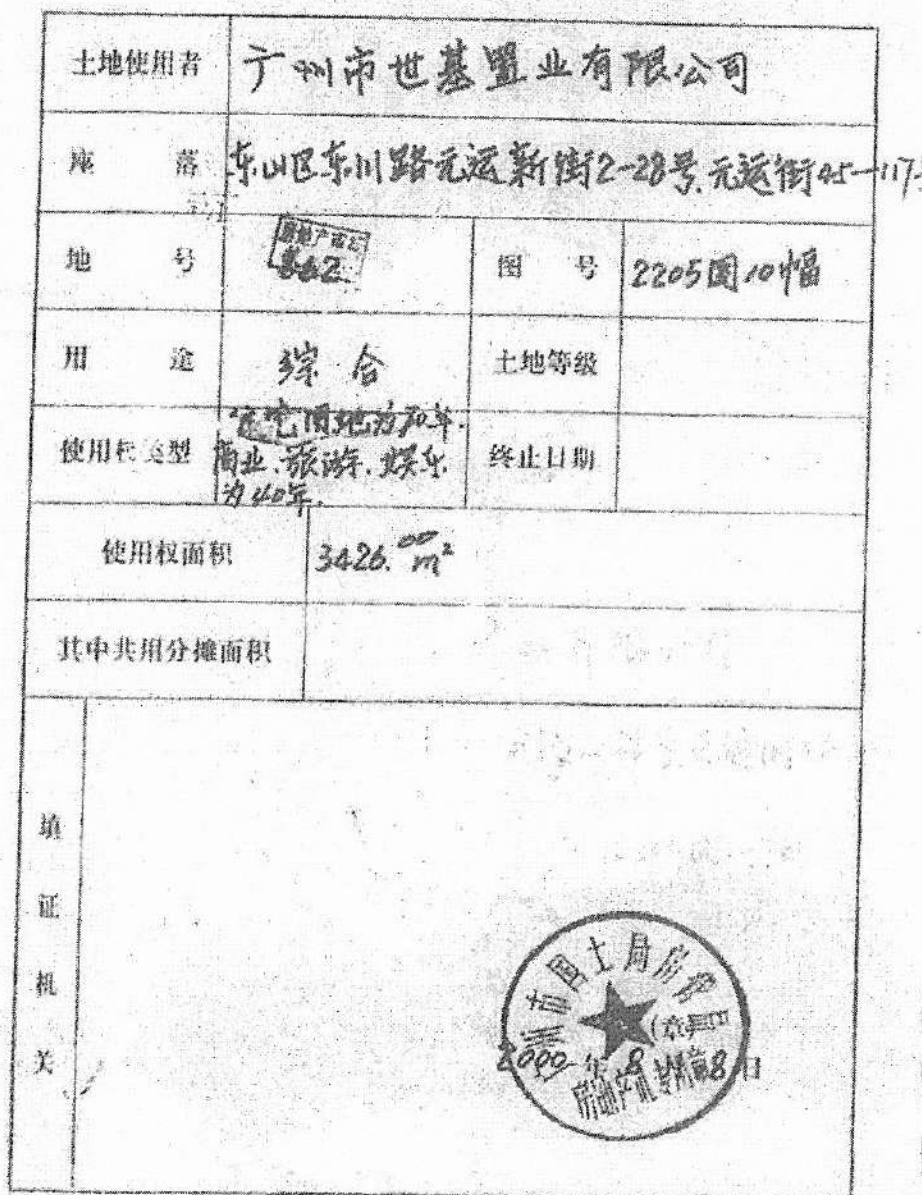 土地使用者 广州市世基置业有限公司
座落 东山区东川路元运新街2-28号、元运街45-117
地号 图号 2205图10幅
用途 综合 土地等级
使用权类型 住宅用地为70年.
商业、旅游、娱乐
为40年. 终止日期
使用权面积 3426.00m²
其中共用分摊面积
填证机关
州市国土局房
(章)
2000年8月8日
房地产